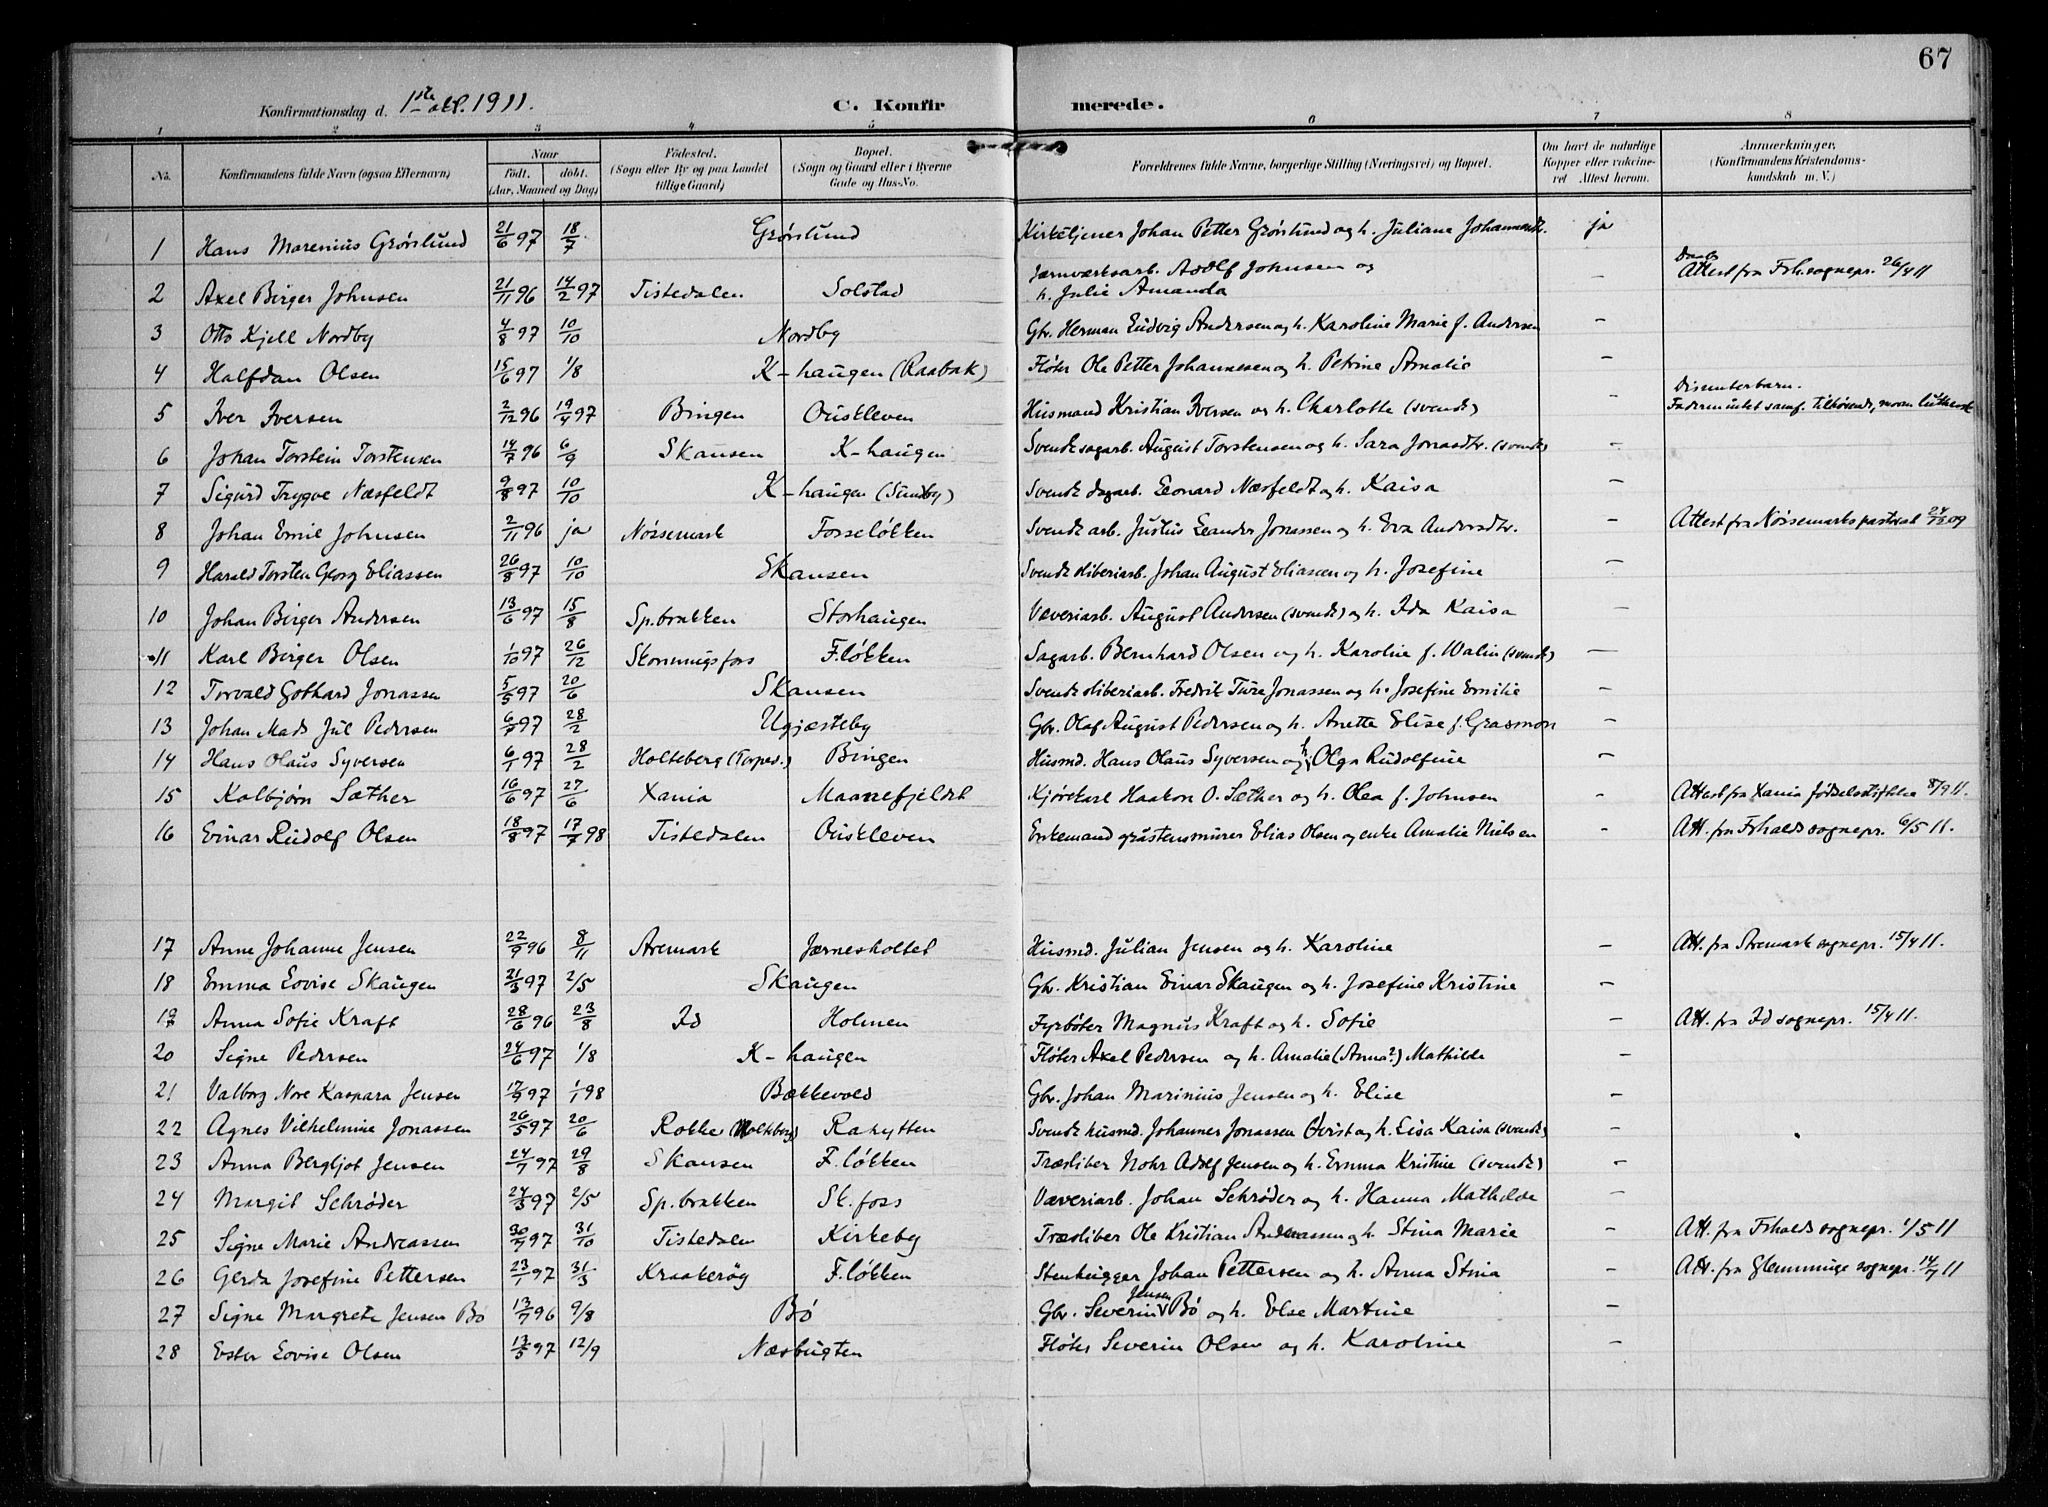 67
Konfirmationsdag d. 1ste okt. 1911. C. Konfirmerede.
1 2 3 4 5 6 7 8
No. Konfirmandens fulde Navn (ogsaa Efternavn) Naar Födt. döbt. (Aar, Maaned og Dag) Födested. (Sogn eller By og paa Landet tillige Gaard) Bopæl. (Sogn og Gaard eller i Byerne Gade og Hus-No. Forældrenes fulde Navne, borgerlige Stilling (Næringsvei) og Bopæl. Om havt de naturlige Kopper eller vakcineret Attest herom. Anmærkninger, (Konfirmandens Kristendomskundskab m. V.)
1 Hans Marenius Grørslund 21/6 97 18/7 Grørslund Kirketjener Johan Petter Grørslund og h. Juliane Johannesdtr. ja
2 Axel Birger Johnsen 21/11 96 14/2 97 Tistedalen Solstad Jærnværksarb. Adolf Johnsen og h. Julie Amanda – Daabs Attest fra Frh. sognepr. 26/4 11
3 Otto Kjell Nordby 4/8 97 10/10 Nordby Gbr. Herman Ludvig Andersen og h. Karoline Marie f. Andersen –
4 Halfdan Olsen 15/6 97 1/8 K-haugen (Raabak) Fløter Ole Petter Johannesen og h. Petrine Amalie –
5 Iver Iversen 2/12 96 19/4 97 Bingen Oustleven Husmand Kristian Iversen og h. Charlotte (svensk) – Disenterbarn. Faderen intet samf. tilhørende, moren luthersk
6 Johan Torstein Torstensen 14/7 96 6/9 Skansen K-haugen Svensk sagarb. August Torstensen og h. Sara Jonasdtr. (svensk) –
7 Sigurd Trygve Næsfeldt 9/8 97 10/10 K-haugen (Sundby) Svensk dagarb. Leonard Næsfeldt og h. Kaisa –
8 Johan Emil Johnsen 2/11 96 ja Nössemark Forseløkken Svensk arb. Justus Leander Jonassen og h. Eva Andersdtr. – Attest fra Nössemarks pastorat 09
9 Harald Torsten Georg Eliassen 26/8 97 10/10 Skansen Svensk sliberiarb. Johan August Eliassen og h. Josefine –
10 Johan Birger Andersen 13/6 97 15/8 Sp.brakken Storhaugen Væveriarb. August Andersen (svensk) og h. Ida Kaisa –
11 Karl Birger Olsen 1/10 97 26/12 Skonningsfors F.løkken Sagarb. Bernhard Olsen og h. Karoline f. Walin (svensk) –
12 Torvald Gothard Jonassen 5/5 97 20/6 Skansen Svensk sliberiarb. Fredrik Ture Jonassen og h. Josefine Emilie –
13 Johan Mads Jul Pedersen 97 28/2 Ugjæsteby Gbr. Olaf August Pedersen og h. Anette Elise f. Grasmon –
14 Hans Olaus Syversen 6/1 97 28/2 Holteberg (Torped.) Bingen Husmd. Hans Olaus Syversen og h. Olga Rudolfine –
15 Kolbjørn Sæther 16/6 97 27/6 Xania Maanefjeldet Kjørekarl Haakon O. Sæther og h. Olea f. Johnsen – Attest fra Xania fødselsstiftelse 8/9 11.
16 Einar Rudolf Olsen 18/8 97 17/7 98 Tistedalen Oustleven Enkemand gråstensmurer Elias Olsen og enke Amalie Nielsen – Att. fra Frhalds sognepr. 6/5 11.
17 Anne Johanne Jensen 22/9 96 8/11 Aremark Jærnesholtet Husmd. Julian Jensen og h. Karoline – Att. fra Aremark sognepr. 15/4 11.
18 Emma Lovise Skaugen 21/3 97 2/5 Skaugen Gbr. Kristian Einar Skaugen og h. Josefine Kristine –
19 Anna Sofie Kraft 28/6 96 23/8 Id Holmen Fyrbøter Magnus Kraft og h. Sofie – Att. fra Id sognepr. 15/4 11.
20 Signe Pedersen 24/6 97 1/8 K-haugen Fløter Axel Pedersen og h. Amalie (Anna?) Mathilde –
21 Valborg Nore Kaspara Jensen 17/9 97 1/1 98 Bækkevold Gbr. Johan Marinius Jensen og h. Elise –
22 Agnes Vilhelmine Jonassen 26/5 97 20/6 Rokke (Holteberg) Rahytten Svensk husmd. Johannes Jonassen Qvist og h. Lisa Kaisa (svensk) –
23 Anna Bergljot Jensen 24/7 97 29/8 Skansen F.løkken Træsliber Nohr Adolf Jensen og h. Emma Kristine (svensk) –
24 Margit Schrøder 24/3 97 2/5 Sp.brakken Sk.foss Væveriarb. Johan Schrøder og h. Hanna Mathilde –
25 Signe Marie Andreassen 30/9 97 31/10 Tistedalen Kirkeby Træsliber Ole Kristian Andreassen og h. Stina Marie – Att. fra Frhalds sognepr. 1/5 11
26 Gerda Josefine Pettersen 23/1 97 31/3 Kraakerøy F.løkken Stenhugger Johan Pettersen og h. Anna Stina – Att. fra Glemminge sognepr. 14/7 11
27 Signe Margrete Jensen Bø 13/7 96 9/8 Bø Gbr. Severin Jensen Bø og h. Else Martine –
28 Ester Lovise Olsen 13/3 97 12/9 Næsbugten Fløter Severin Olsen og h. Karoline –